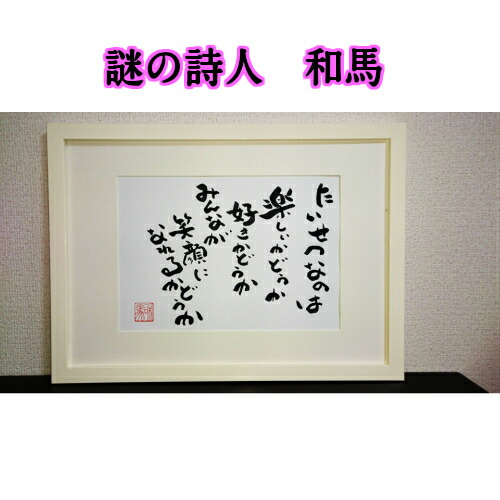 謎の詩人　和馬
たいせつなのは
楽しいかどうか
好きかどうか
みんなが
笑顔に
なれるかどうか